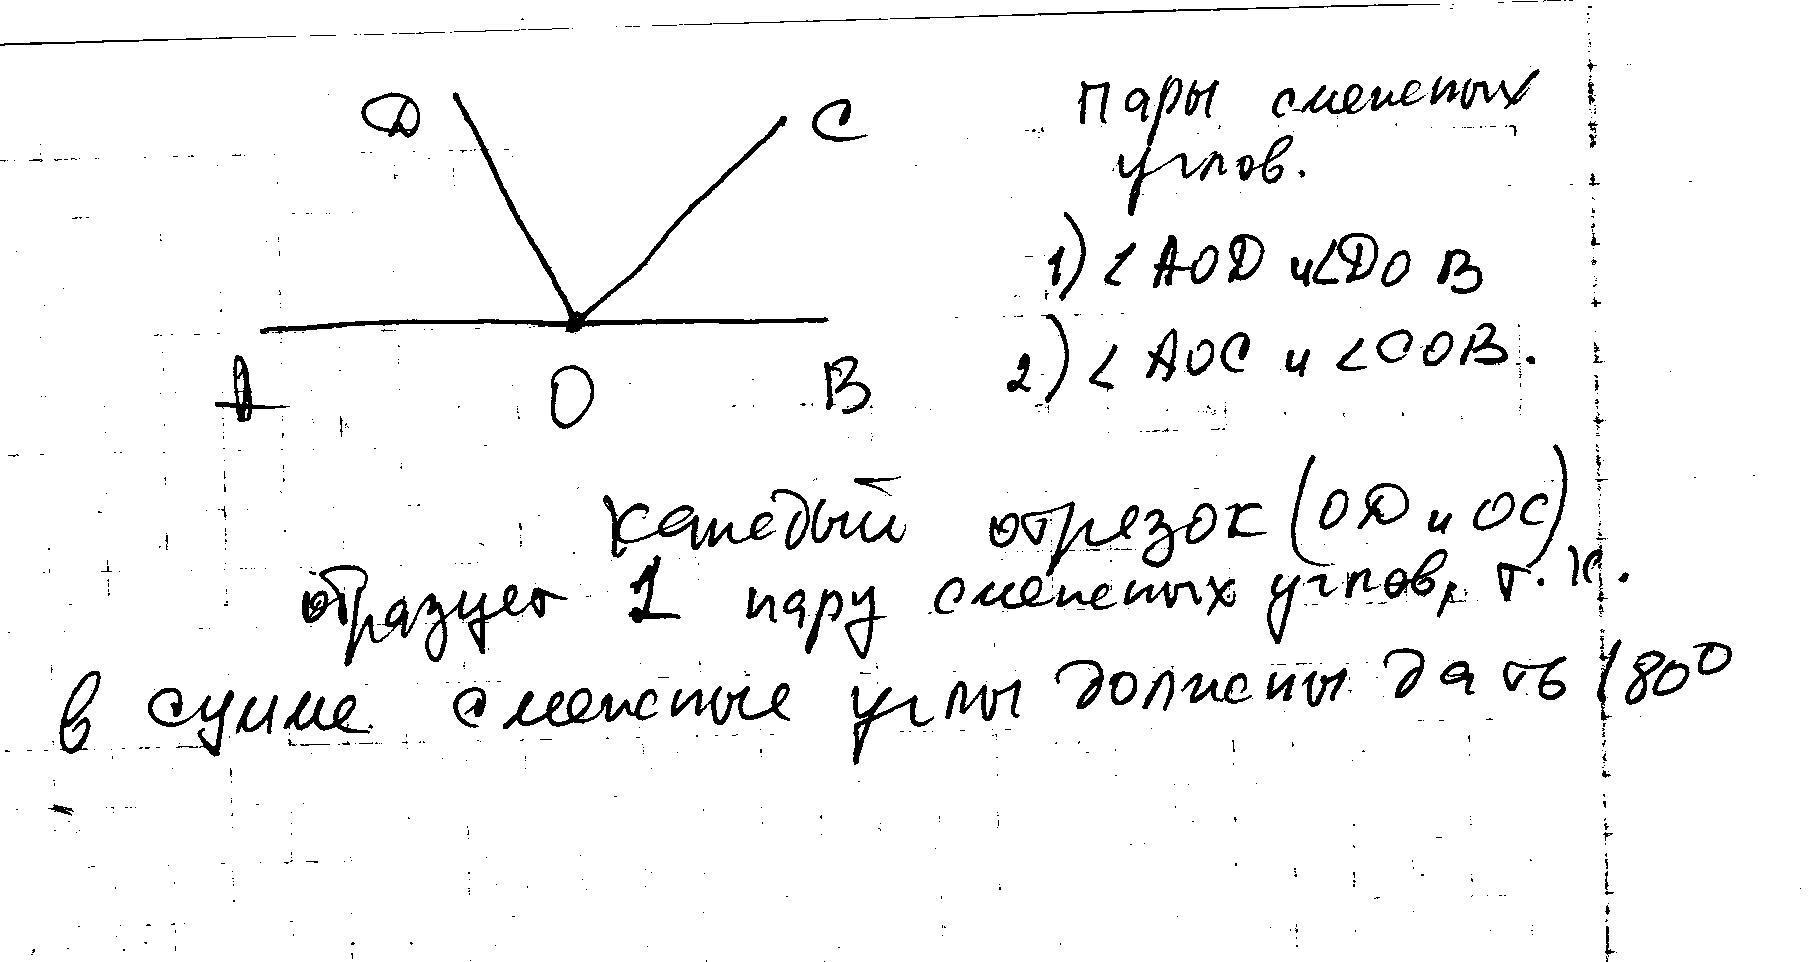 D
C
Пары смежных
углов.
1) < AOD и <DOB
2) < AOC и <COB.
A
O
B
Каждый отрезок (OD и OC)
образует 1 пару смежных углов, т.к.
в сумме смежные углы должны дать 180°